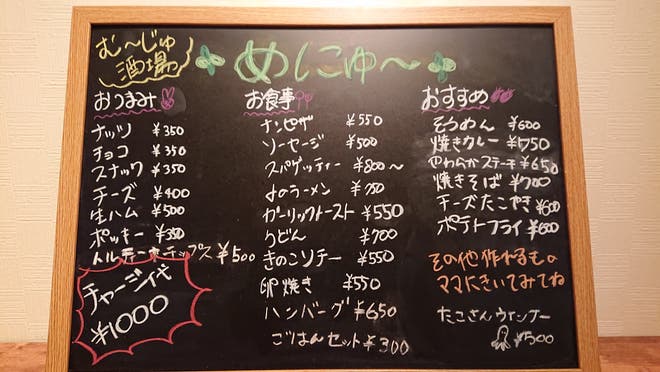 む〜じゅ
酒場
めにゅ〜
おつまみ
ナッツ ¥350
チョコ ¥350
スナック ¥350
チーズ ¥400
生ハム ¥500
ポッキー ¥350
トルティーヤチップス ¥500
チャージ代
¥1000
お食事
ナンピザ ¥550
ソーセージ ¥500
スパゲッティー ¥800〜
ラーメン
ガーリックトースト ¥550
うどん ¥700
きのこソテー ¥550
卵焼き ¥550
ハンバーグ ¥650
ごはんセット ¥300
おすすめ
そうめん ¥600
焼きカレー ¥750
やわらかステーキ ¥650
焼きそば ¥700
チーズたこやき ¥600
ポテトフライ ¥600
その他作れるもの
ママにきいてみてね
たこさんウインナー
¥500